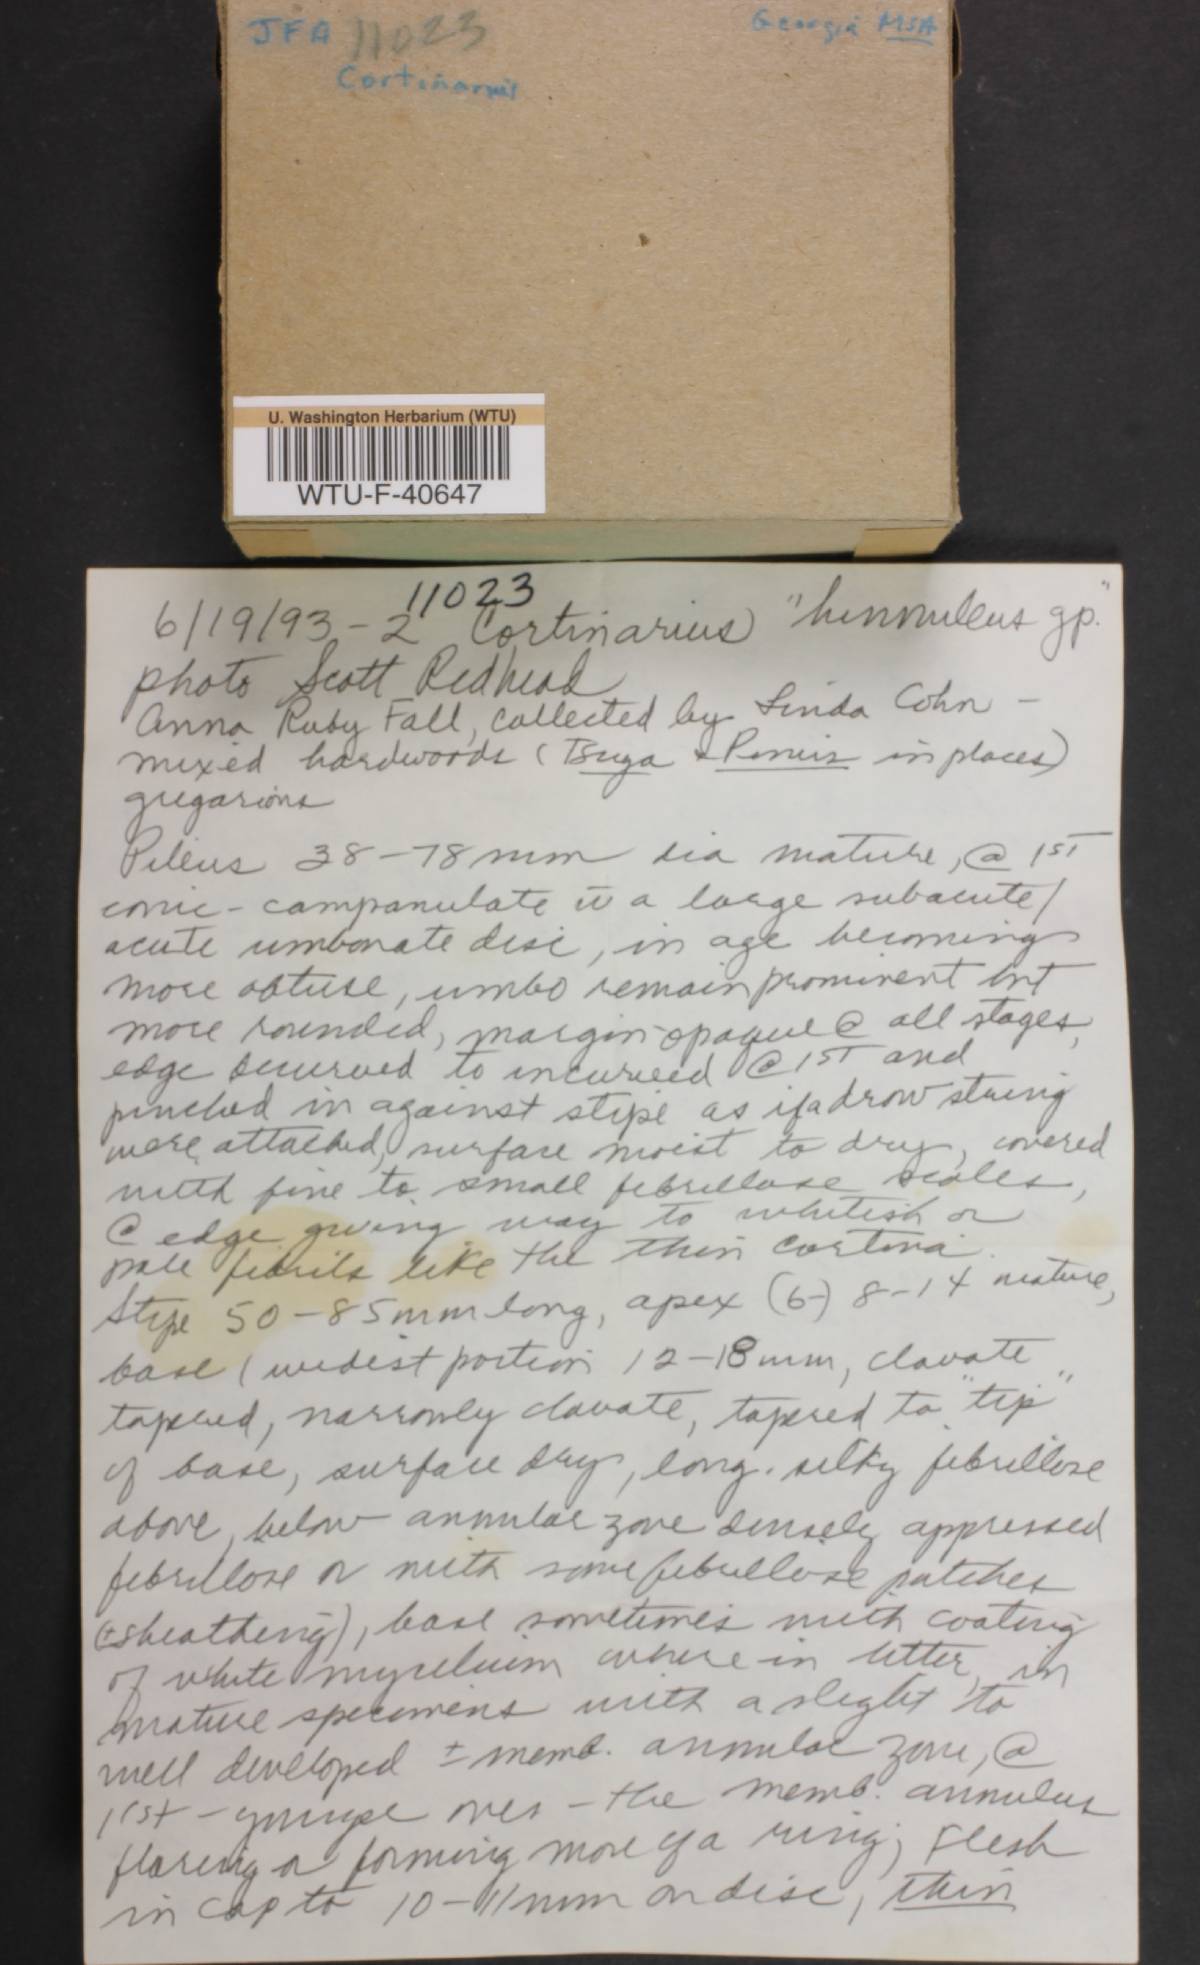 JFA 11023
Georgia MSA
Cortinarius
U. Washington Herbarium (WTU)
WTU-F-40647
11023
6/19/93-2 Cortinarius "hinnuleus gp."
photo Scott Redhead
Anna Ruby Fall, collected by Linda Cohn -
mixed hardwoods (Tsuga + Pinus in places)
gregarious
Pileus 38-78mm dia mature, @ 1ST
conic-campanulate w a large subacute/
acute umbonate disc, in age becoming
more obtuse, umbo remain prominent but
more rounded, margin opaque @ all stages,
edge decurved to incurved @ 1ST and
pinched in against stipe as if a draw string
were attached, surface moist to dry, covered
with fine to small fibrillose scales,
@ edge giving way to whitish or
pale fibrils like the thin cortina.
Stipe 50-85mm long, apex (6-) 8-14 mature,
base (widest portion 12-18mm, clavate
tapered, narrowly clavate, tapered to "tip"
of base, surface dry, long. silky fibrillose
above, below annular zone densely appressed
fibrillose or with some fibrillose patches
(±sheathing), base sometimes with coating
of white mycelium where in litter, in
mature specimens with a slight to
well developed ± memb. annular zone, @
1rst - younge ones - the memb. annulus
flaring or forming more of a ring; Flesh
in cap to 10-11mm on disc, thin